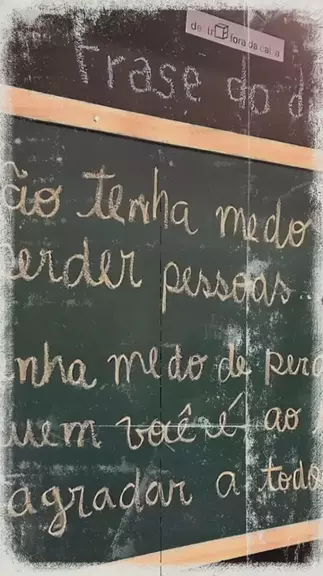 dentro fora da caixa
Frase do d
ão tenha medo
erder pessoas...
enha medo de perd
uem você é ao
agradar a todo